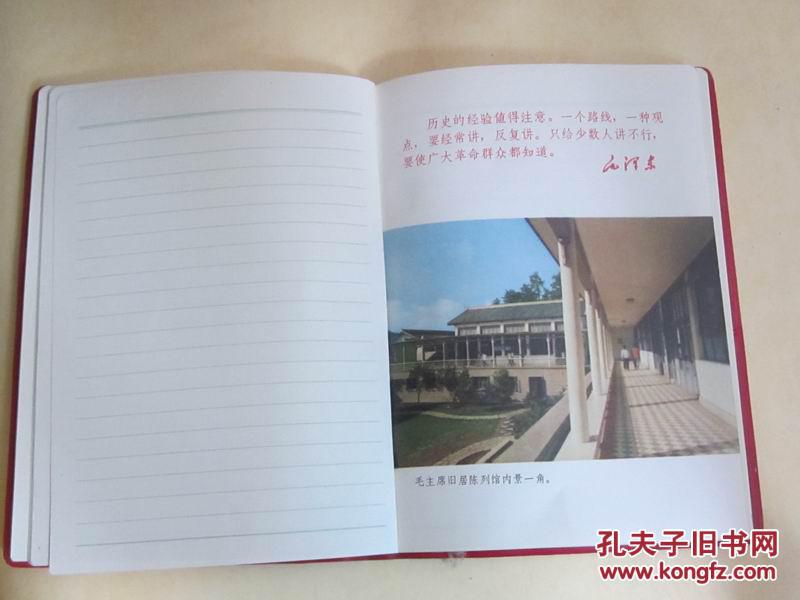 历史的经验值得注意。一个路线，一种观
点，要经常讲，反复讲。只给少数人讲不行，
要使广大革命群众都知道。
毛泽东
毛主席旧居陈列馆内景一角。
孔夫子旧书网
www.kongfz.com